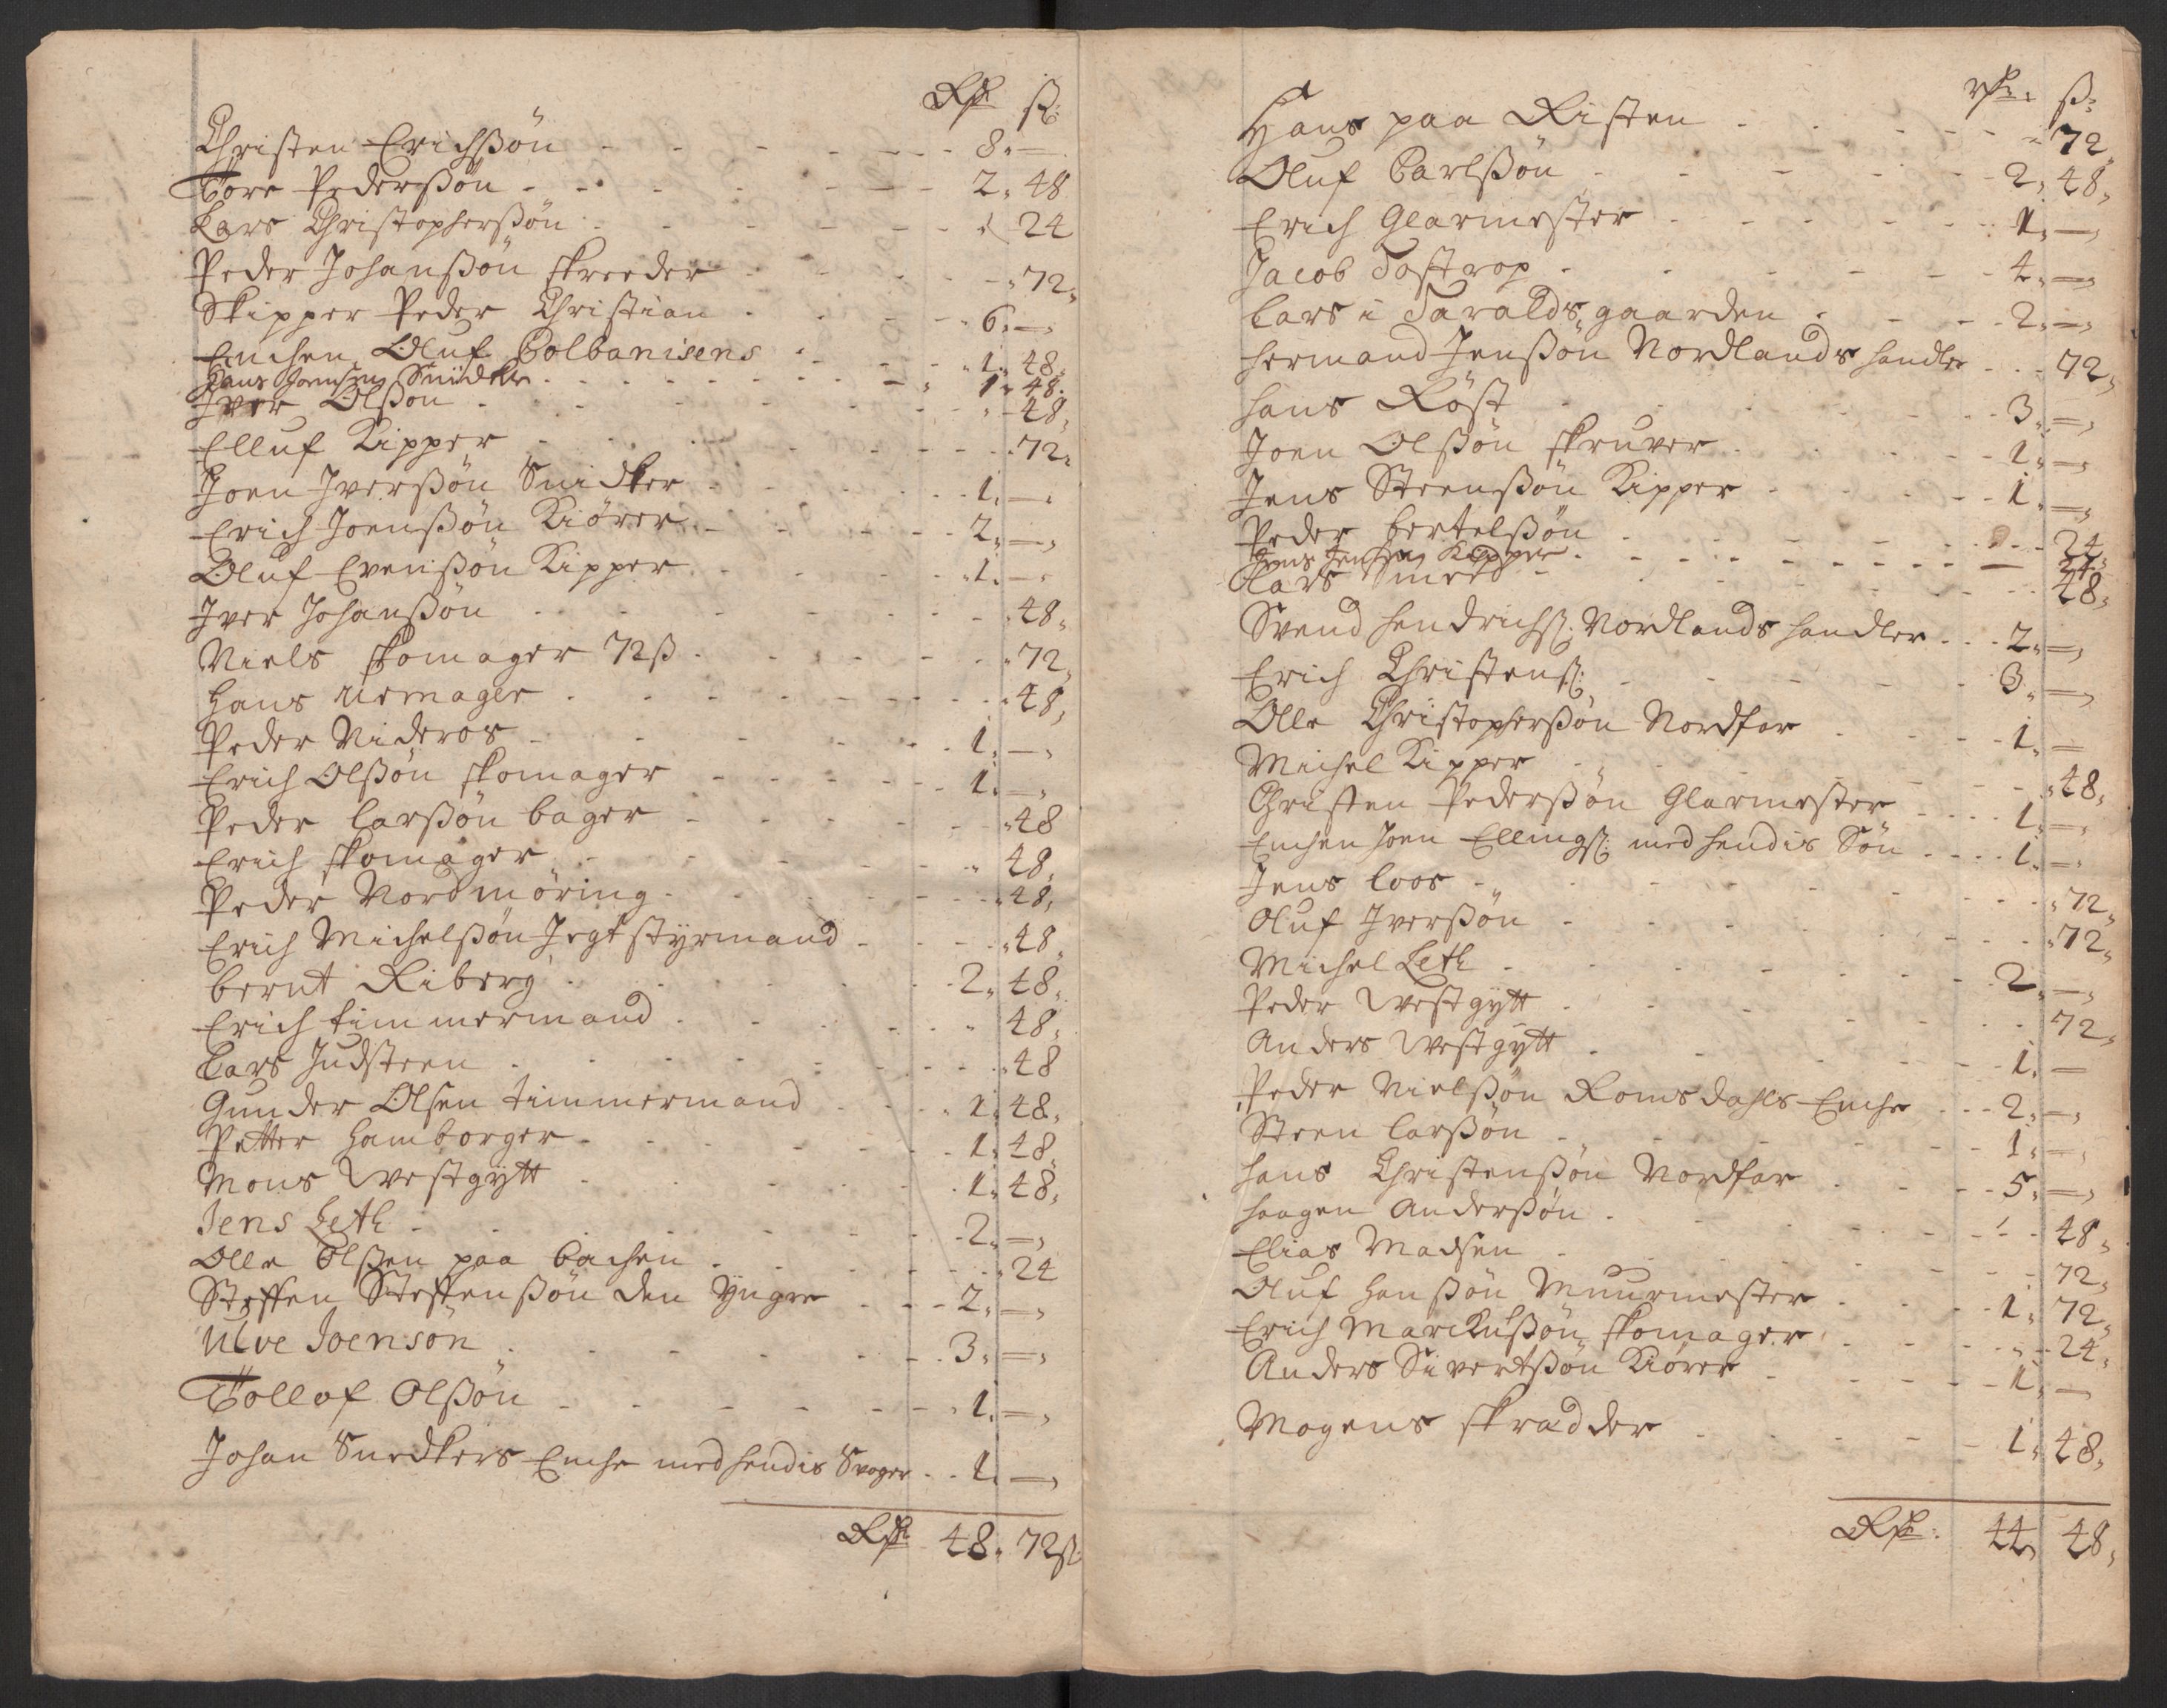 Rdr ß:
Christen Erichßön - - - 8. —
Tore Pederßön - - - 2. 48
Lars Christopherßön - - - 24
Peder Johanßön skreder - - - 72.
Skipper Peder Christian - - - 6. —
Enchen Oluf Bolbanisens - - - 1. 48.
Hans Joensen Snidker - - - 1. 48.
Iver Olßön - - - 48.
Elluf Kipper - - - 72.
Joen Iverßön Snidker - - - 1. —
Erich Joenßön Kiörer - - - 2. —
Oluf Evenßön Kipper - - - 1. —
Iver Johanßön - - - 48.
Niels skomager 72 ß - - - 72.
Hans Urmager - - - 48.
Peder Nideros - - - 1. —
Erich Olßön skomager - - - 1. —
Peder Larßön bager - - - 48
Erich skomager - - - 48.
Peder Nordmöring - - - 48.
Erich Michelßön Jegt styrmand - - - 48.
bernt Riberg - - - 2. 48.
Erich timmermand - - - 48.
Lars Judsteen - - - 48
Gunder Olsen timmermand - - - 1. 48.
Petter Hamborger - - - 1. 48.
Mons Westgytt - - - 1. 48.
Jens Leth - - - 2. —
Olle Olßen paa bachen - - - 24
Steffen Steffenßön den Yngre - - - 2. —
Ulve Joensön - - - 3. —
Tollof Olßön - - - 1. —
Johan Snedkers Enche med hendis Svoger - - 1. —
Rdr 48. 72 ß
Rdr: ß:
Hans paa Risten - - - 72
Oluf Carlßön - - - 2. 48.
Erich Glarmester - - - 1. —
Jacob Tostrop - - - 4. —
Lars i Taralds gaarden - - - 2. —
Hermand Jenßön Nordlands handler - - 72.
Hans Röst - - - 3. —
Joen Olßön skruver - - - 1. —
Jens Steenßön Kipper - - - 1. —
Peder bertelßön - - - 24
Jens Jensen Kipper - - - 24.
Lars smed - - - 48.
Svend Hendrichs: Nordlands handler - - 2. —
Erich Christens: - - - 3. —
Olle Christopherßön Nordfar - - - 1. —
Michel Kipper - - - 48.
Christen Pederßön Glarmester - - - 1. —
Enchen Joen Ellings: med hendis Sön - - - 1. —
Jens Loos - - - 72.
Oluf Iverßön - - - 72.
Michel Leth - - - 2. —
Peder Westgytt - - - 72.
Anders Westgÿtt - - - 1. —
Peder Nielßön Romsdahls Enche - - - 2. —
Steen Larßön - - - 1. —
Hans Christenßön Nordfar - - - 5. —
Haagen Anderßön - - - 48.
Elias Madsen - - - 72.
Oluf Hanßön Muurmester - - - 1. 72.
Erich Marckußön skomager - - - 24.
Anders Sivertßön Kiörer - - - 1. —
Mogens skradder - - - 1. 48.
Rdr: 44. 48.